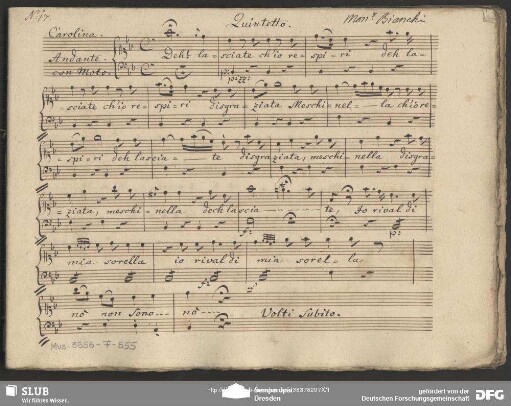 Nº 17.
Quintetto.
Monʳ Bianchi
Carolina.
Andante
con Moto.
Deh! la- sciate ch'io re- spi- ri deh la-
sciate ch'io re- spi- ri disgra- ziata Meschi- nel- la ch'io re-
spi- ri deh lascia- te disgraziata, meschi- nella disgra-
ziata, meschi- nella deh lascia te, Io rival di
mia sorella io rival di mia sorel- la
nò non sono nò Volti Subito.
Mus. 3856-F-555
SLUB
Wir führen Wissen.
Dresden
gefördert von der
Deutschen Forschungsgemeinschaft
DFG